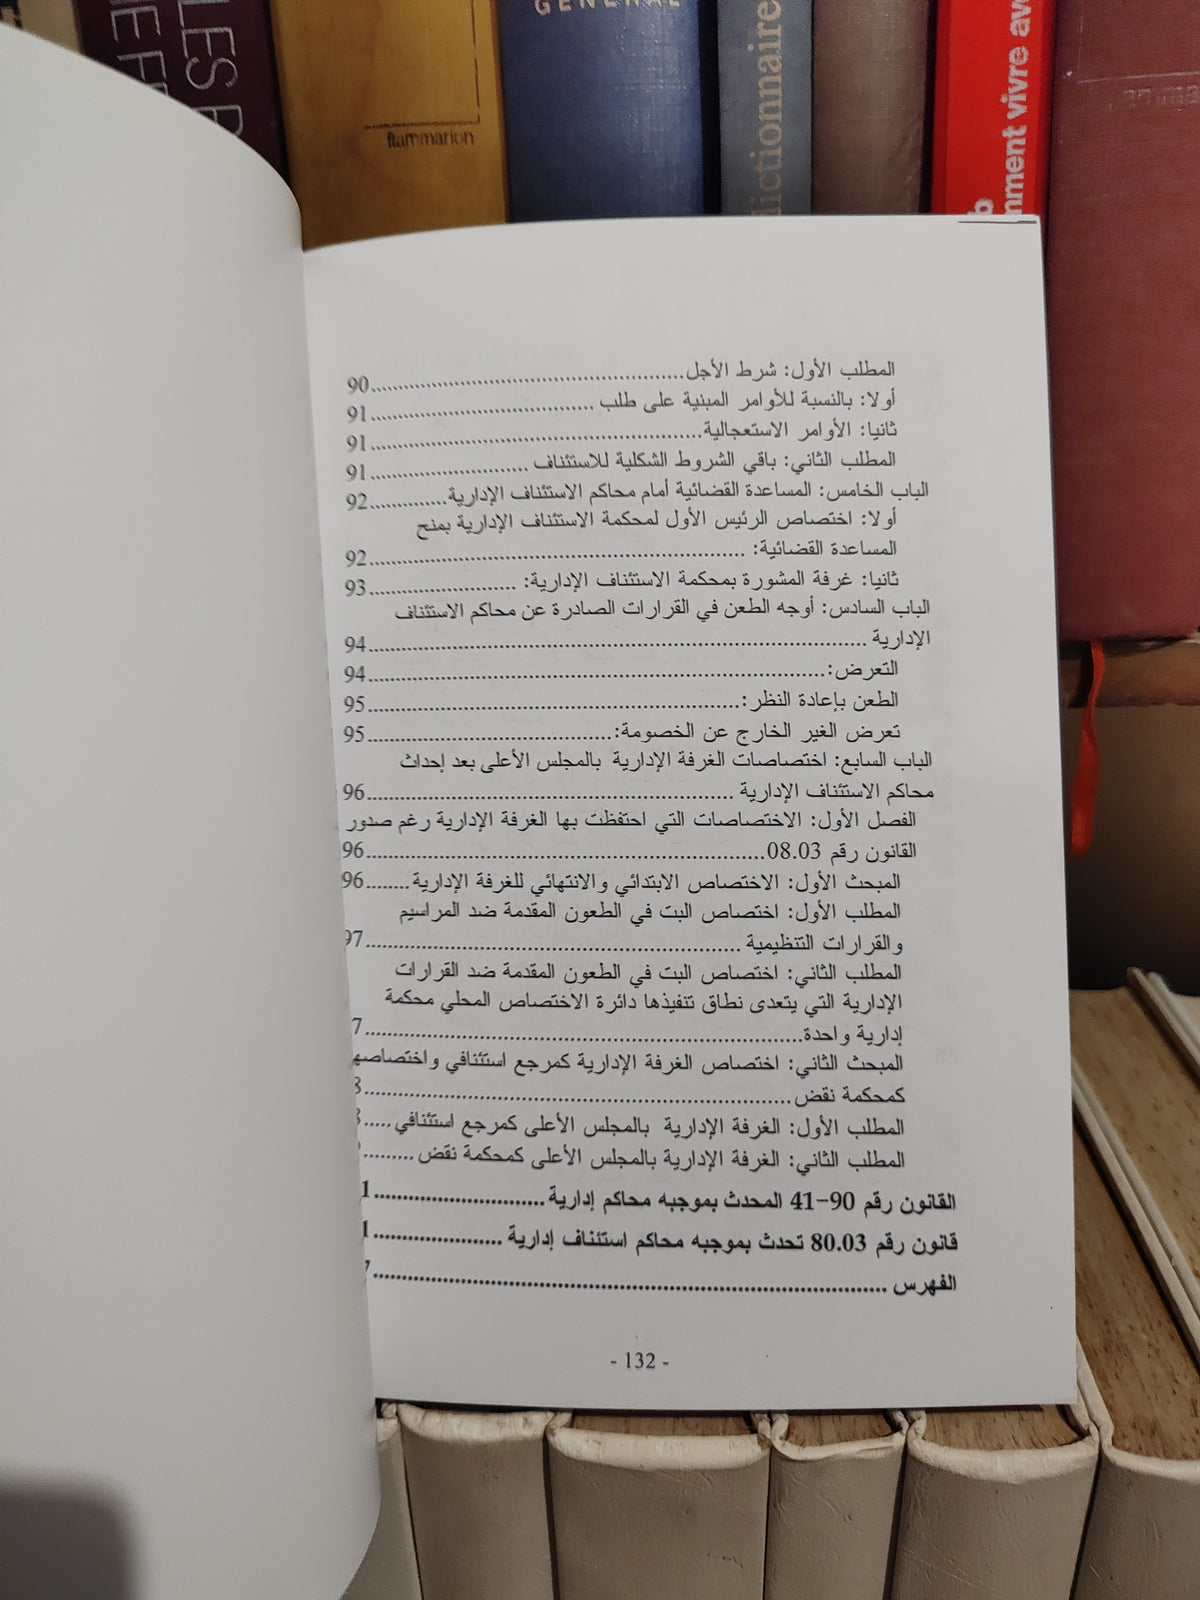 GENERAL
flammarion
dictionnaire
mment vivre ave
المطلب الأول: شرط الأجل..........90
أولا: بالنسبة للأوامر المبنية على طلب ..........91
ثانيا: الأوامر الاستعجالية..........91
المطلب الثاني: باقي الشروط الشكلية للاستئناف ..........91
الباب الخامس: المساعدة القضائية أمام محاكم الاستئناف الإدارية..........92
أولا: اختصاص الرئيس الأول لمحكمة الاستئناف الإدارية بمنح
المساعدة القضائية: ..........92
ثانيا: غرفة المشورة بمحكمة الاستئناف الإدارية: ..........93
الباب السادس: أوجه الطعن في القرارات الصادرة عن محاكم الاستئناف
الإدارية ..........94
التعرض:..........94
الطعن بإعادة النظر:..........95
تعرض الغير الخارج عن الخصومة:..........95
الباب السابع: اختصاصات الغرفة الإدارية بالمجلس الأعلى بعد إحداث
محاكم الاستئناف الإدارية ..........96
الفصل الأول: الاختصاصات التي احتفظت بها الغرفة الإدارية رغم صدور
القانون رقم 08.03..........96
المبحث الأول: الاختصاص الابتدائي والانتهائي للغرفة الإدارية ........96
المطلب الأول: اختصاص البت في الطعون المقدمة ضد المراسيم
والقرارات التنظيمية ..........97
المطلب الثاني: اختصاص البت في الطعون المقدمة ضد القرارات
الإدارية التي يتعدى نطاق تنفيذها دائرة الاختصاص المحلي محكمة
إدارية واحدة..........7
المبحث الثاني: اختصاص الغرفة الإدارية كمرجع استئنافي واختصاصه
كمحكمة نقض..........8
المطلب الأول: الغرفة الإدارية بالمجلس الأعلى كمرجع استئنافي .....8
المطلب الثاني: الغرفة الإدارية بالمجلس الأعلى كمحكمة نقض .........
القانون رقم 90-41 المحدث بموجبه محاكم إدارية..........1
قانون رقم 80.03 تحدث بموجبه محاكم استئناف إدارية ..........1
الفهرس ..........7
- 132 -